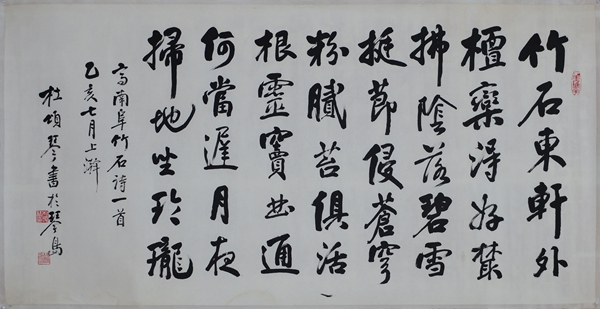 竹石東軒外
檀欒淂好叢
拂陰落碧雪
挺節侵蒼穹
粉膩苔俱活
根靈竇曲通
何當遲月夜
掃地坐玲瓏
高南阜竹石詩一首
乙亥七月上澣
杜頌琴書於琴島